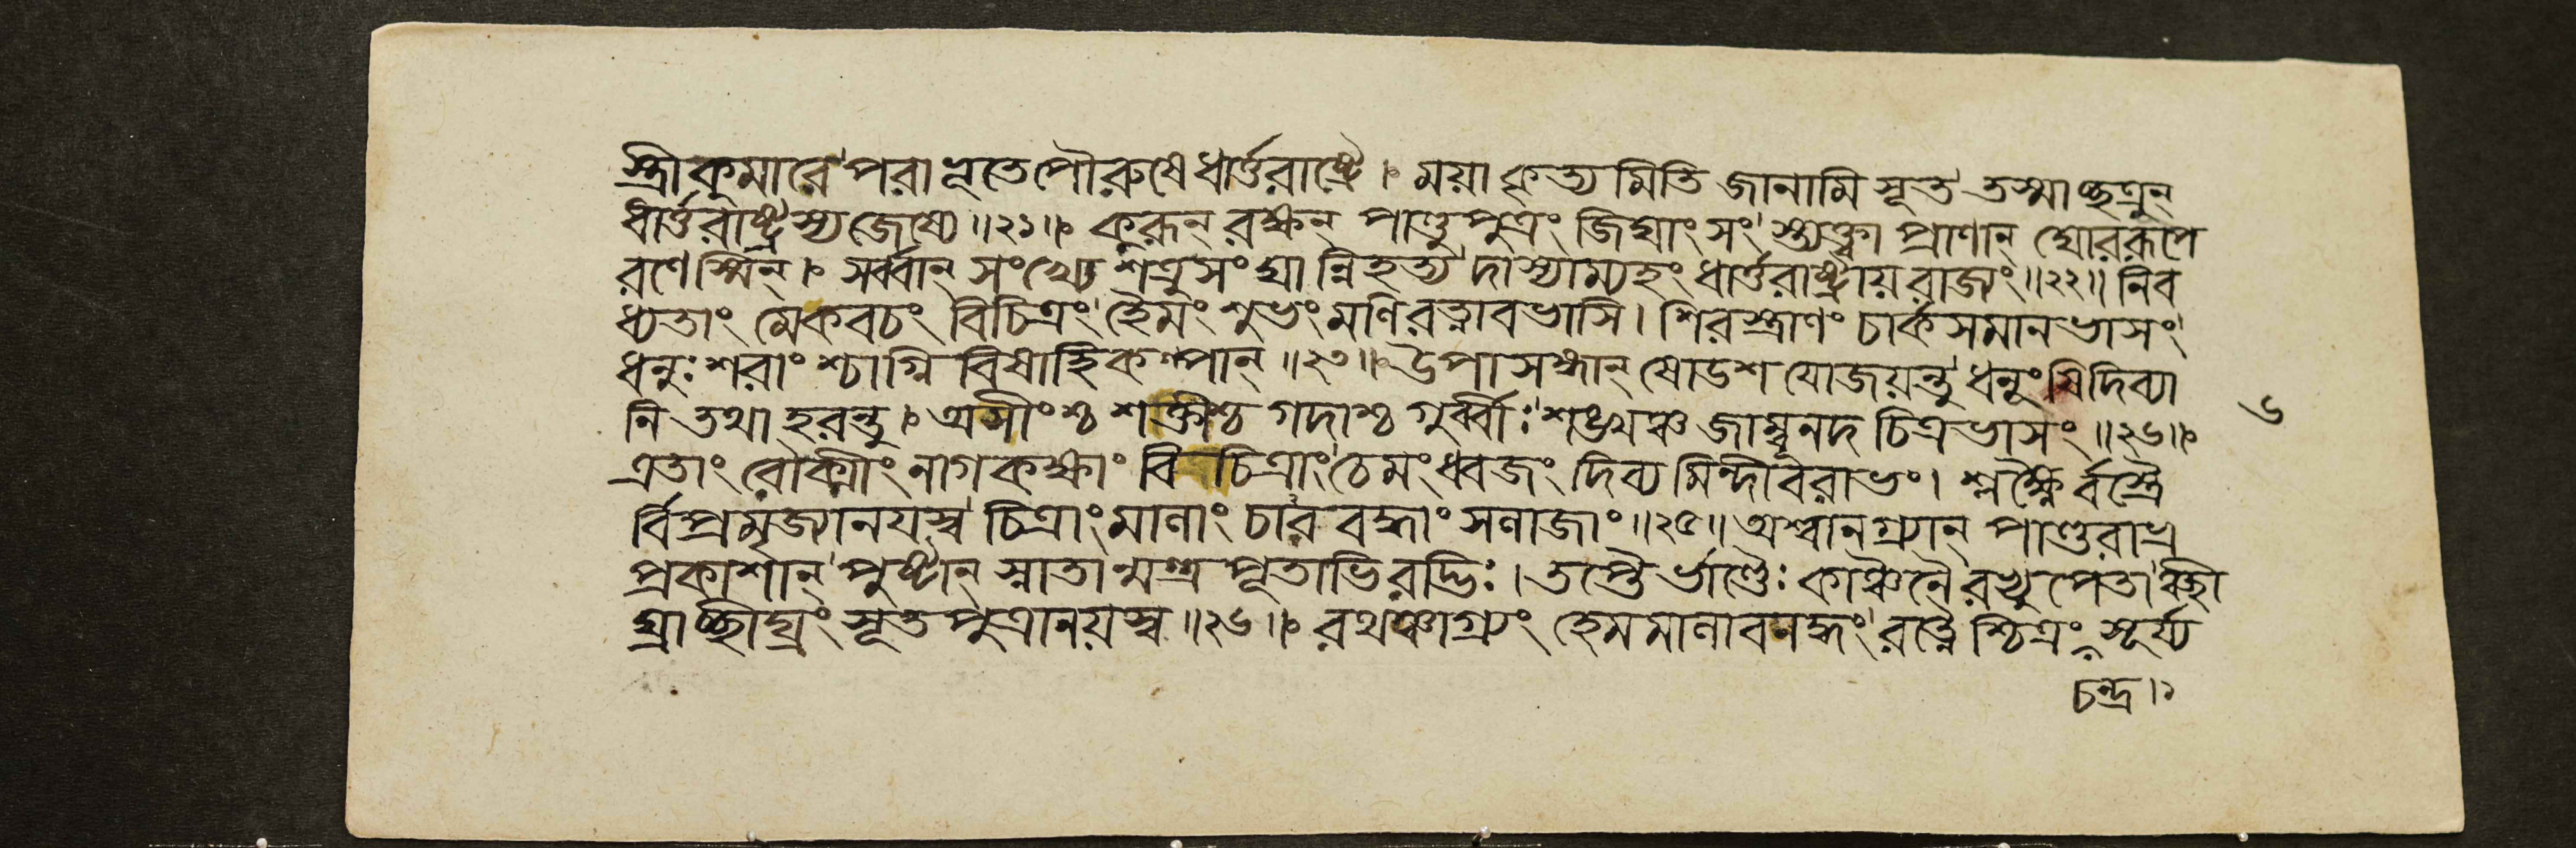 স্ত্রীকুমারে পরাভূতে পৌরুষে ধার্ত্তরাষ্ট্রে। ময়া কৃত্যমিতি জানামি সূত তস্মাচ্ছত্রূন্
ধার্ত্তরাষ্ট্রস্য জেষ্যে॥২১॥ কুরূন্ রক্ষন্ পাণ্ডুপুত্রং জিঘাংসং স্ত্যক্ত্বা প্রাণান্ ঘোররূপে
রণেস্মিন্। সর্ব্বান্ সংখ্যে শত্রুসংঘান্নিহত্য দাস্যাম্যহং ধার্ত্তরাষ্ট্রায় রাজ্যং॥২২॥ নিব
ধ্যতাং মে কবচং বিচিত্রং হৈমং শুভং মণিরত্নাবভাসি। শিরস্ত্রাণং চার্কসমানভাসং
ধনুঃ শরাংশ্চাগ্নি বিষাহিকল্পান্॥২৩॥ উপাসঙ্গান্ ষোডশ যোজয়ন্তু ধনূংষি দিব্যা
নি তথা হরন্তু। অসীংশ্চ শক্তীশ্চ গদাশ্চ গুর্ব্বীঃ শঙ্খঞ্চ জাম্বূনদ চিত্রভাসং॥২৪॥
এতাং রৌক্মীং নাগকক্ষাং বিচিত্রাং ঠেমং ধ্বজং দিব্য মিন্দীবরাভং। শ্লক্ষ্ণৈর্বস্ত্রৈ
র্বিপ্রমৃজ্যানযস্ব চিত্রাং মালাং চার বদ্ধাং সলাজাং॥২৫॥ অশ্বানগ্র্যান্ পাণ্ডুরাভ্র
প্রকাশান্ পুষ্টান্ স্নাতান্মন্ত্র পূতাভিরদ্ভিঃ। তপ্তৈর্ভাণ্ডৈঃ কাঞ্চনৈরভ্যুপেতাঞ্ছী
ঘ্রাচ্ছীঘ্রং সূতপুত্রানয়স্ব॥২৬॥ রথঞ্চাগ্র্যং হেমমালাবনদ্ধং রত্নৈশ্চিত্রং সূর্য্য
চন্দ্র।
৬